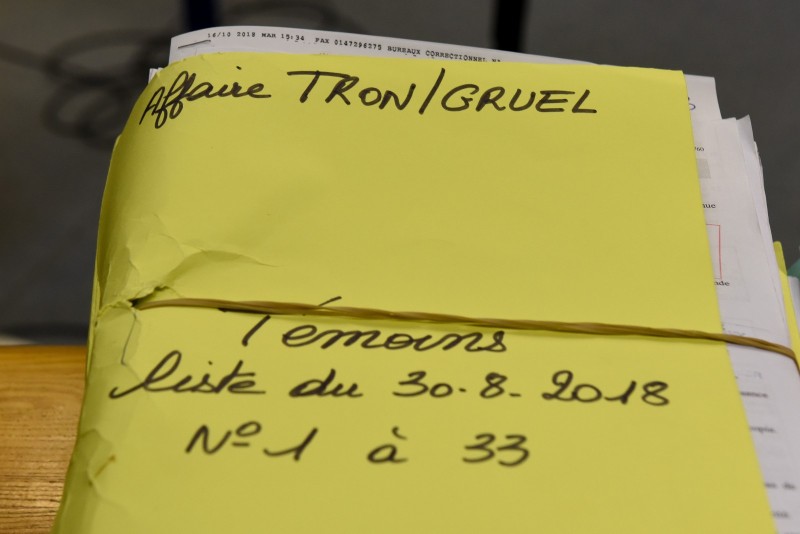 16/10 2018 MAR 15:34 FAX 0147296275 BUREAUX CORRECTIONNEL
Affaire TRON/GRUEL
Témoins
liste du 30.8.2018
Nº1 à 33